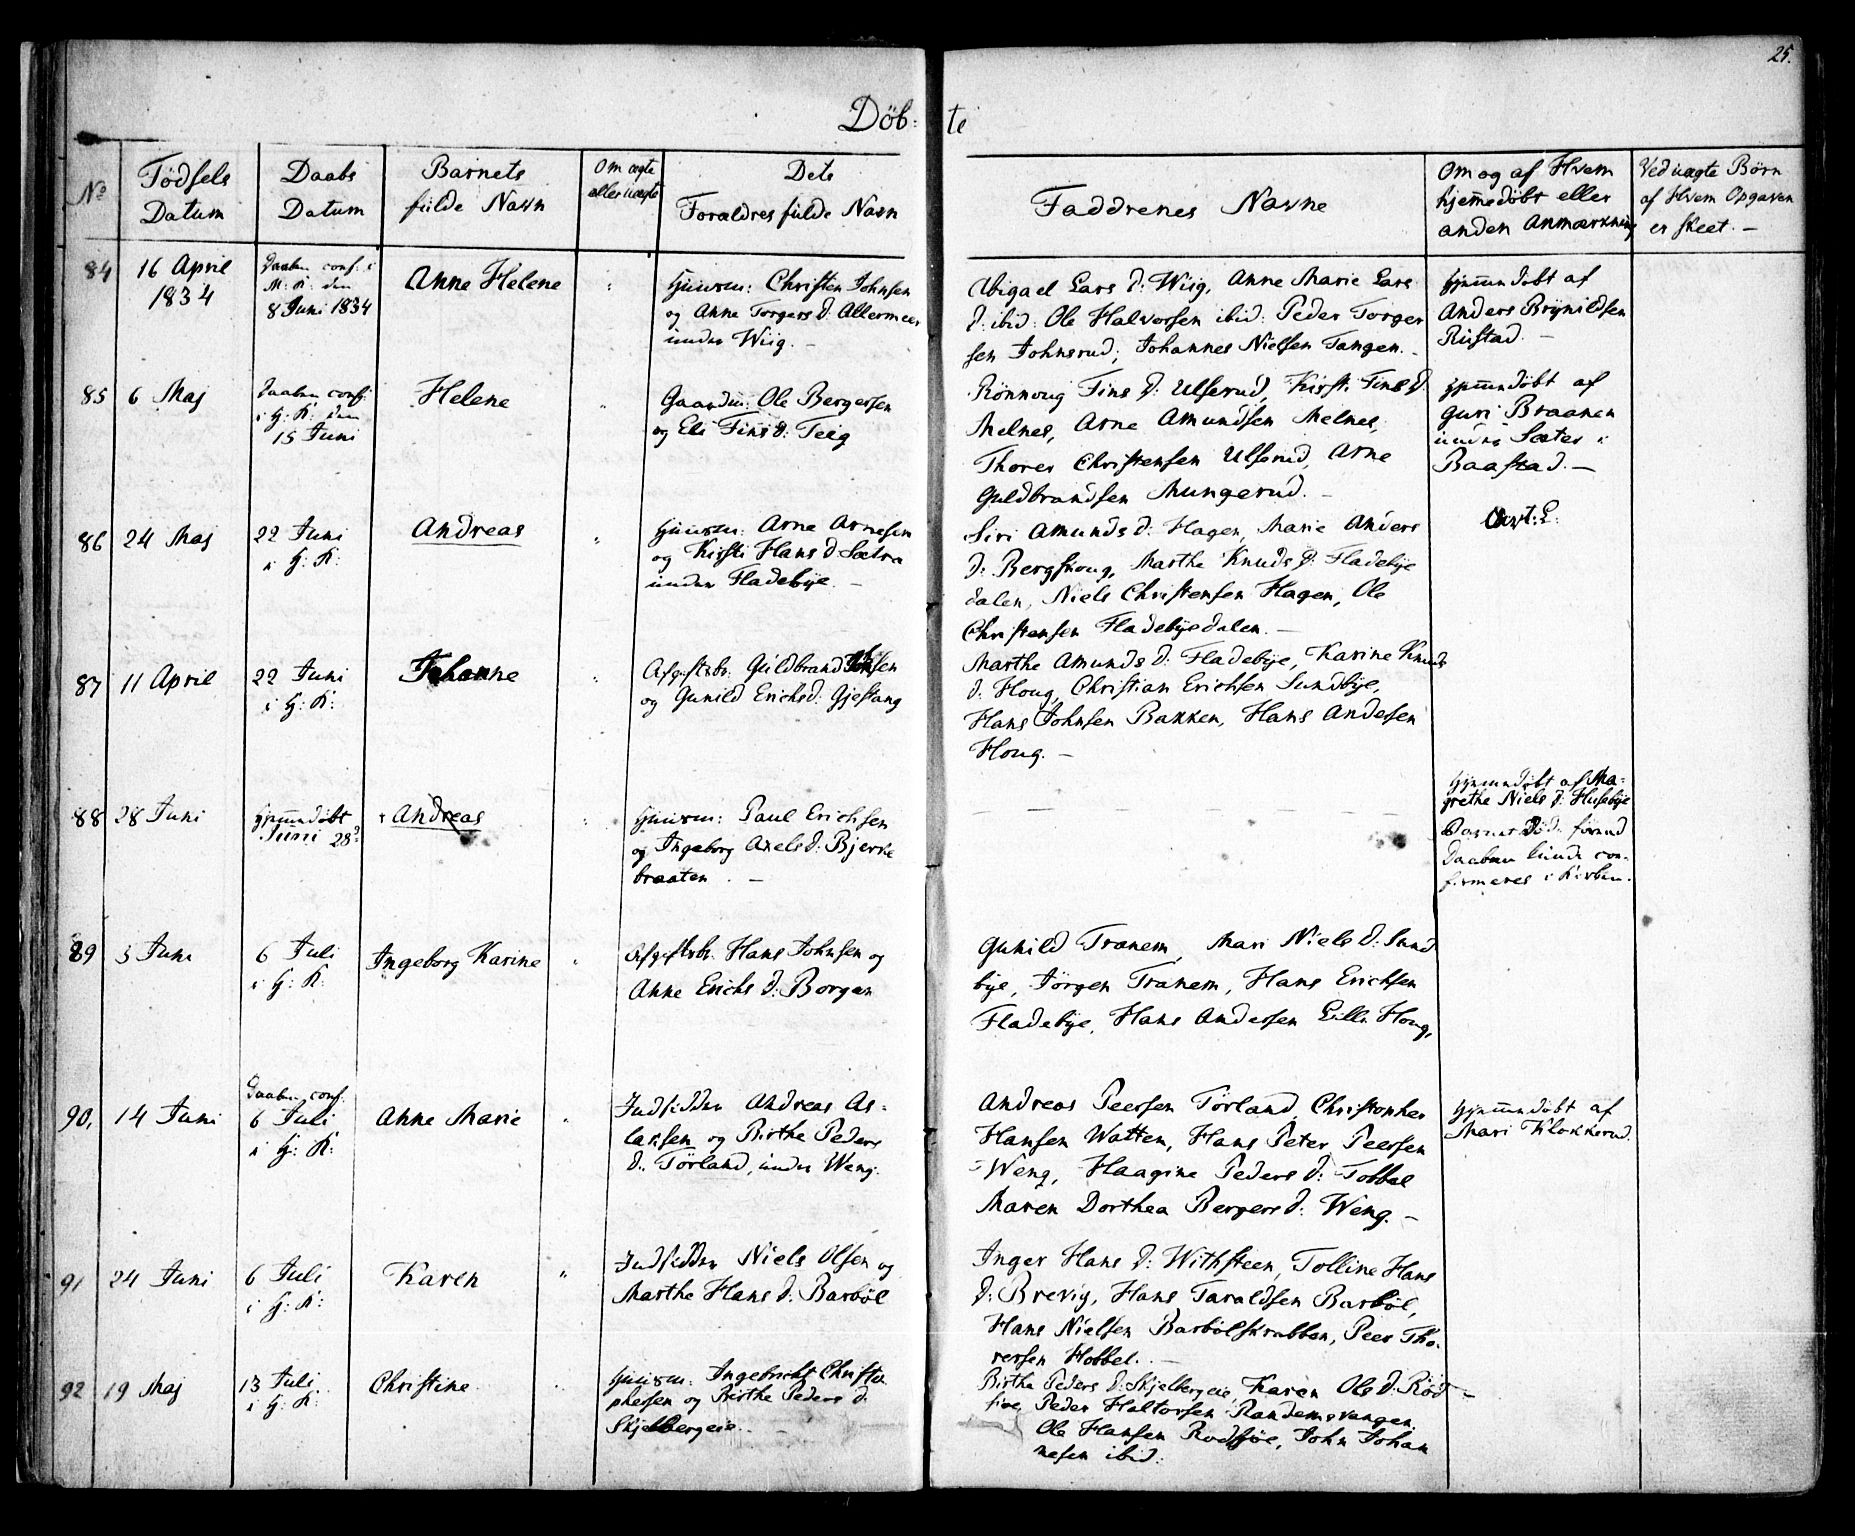 25.
Döbte
No
Födsels
Datum
Daabs
Datum
Barnets
fulde Navn
Om ægte
eller uægte
Dets
Forældres fulde Navn
Faddrenes Navne
Om og af Hvem
hjemmedøbt eller
anden Anmærkning
Ved uægte Børn
af Hvem Opgaven
er skeet. -
84
16 April
1834
Daaben conf. i
M: K: den
8 Juni 1834
Anne Helene
"
Huusm: Christen Johnsen
og Anne Torgers d: Allermeer
under Wiig. -
Abigael Lars d: Wiig, Anne Marie Lars
d: ibid: Ole Halvorsen ibid: Peder Torger
sen Johnsrud, Johannes Nielsen Tangen. -
hjemmedøbt af
Anders Brynildsen
Rustad. -
85
6 Maj
Daaben conf:
i H: K: den
15 Juni
Helene
"
Gaardm: Ole Bergersen
og Eli Fins d: Teig
Rönnoug Fins d: Ulserud, Kirsti Fins d:
Melnes, Arne Amundsen Melnes,
Thorer Christensen Ulserud, Arne
Guldbrandsen Mungerud. -
hjemmedøbt af
Guri Braanen
under Sæter i
Baastad. -
86
24 Maj
22 Juni
i H: K:
Andreas
"
Huusm: Arne Arnesen
og Kirsti Hans d: Sætra
under Fladebye. -
Siri Amunds d: Hagen, Marie Anders
d: Bergskoug, Marthe Knuds d: Fladebye
dalen, Niels Christensen Hagen, Ole
Christensen Fladebyedalen. -
87
11 April
22 Juni
i H: K:
Johanne
"
Afgiftsbr: Guldbrand
og Gunild Erichsd: Gjestang
Marthe Amunds d: Fladebye, Karine Knuds
d: Houg, Christian Erichsen Sundbye,
Hans Johnsen Bakken, Hans Andesen
Houg. -
88
28 Juni
hjemmedøbt
Juni 28
+ Andreas
"
Huusm: Paul Erichsen
og Ingeborg Axels d: Bjerke
braaten. -
hjemmedøbt af Ma-
grethe Niels d: Husebye
Barnet döde førend
Daaben kunde con-
firmeres i Kirken.
89
5 Juni
6 Juli
i H: K:
Ingeborg Karine
"
Afgiftsbr. Hans Johnsen og
Anne Erichs d: Borgen
Gunild Tranem, Mari Niels d: Sund
bye, Jörgen Tranem, Hans Erichsen
Fladebye, Hans Andersen Lille Houg,
90,
14 Juni
Daaben conf.
6 Juli
i H: K:
Anne Marie
"
Indsidder Andreas As-
lassen og Birthe Peders
d: Törland, under Weng.
Andreas Peersen Törland, Christopher
Hansen Watten, Hans Peter Peersen
Weng, Haagine Peders d: Tobbel
Maren Dorthea Bergers d: Weng. -
hjemmedøbt af
Mari Klokkerud.
91
24 Juni
6 Juli
i H: K:
Karen
"
Indsidder Niels Olsen og
Marthe Hans d: Barböl
Inger Hans d: Withsteen, Tolline Hans
d: Brevig, Hans Taraldsen Barböl,
Hans Nielsen Barbölskrabben, Peer Tho-
rersen Hobbel. -
92
19 Maj
13 Juli
i H: K:
Christine
"
Huusm: Ingebricht Christo
phersen og Birthe Peders d:
Skjelbergeie.
Birthe Peders d: Skjelbergeie, Karen Ols d: Röd-
siøe, Peder Haltorsen Randemsvangen,
Ole Hansen Rodsjöe, John Johan
nesen ibid: